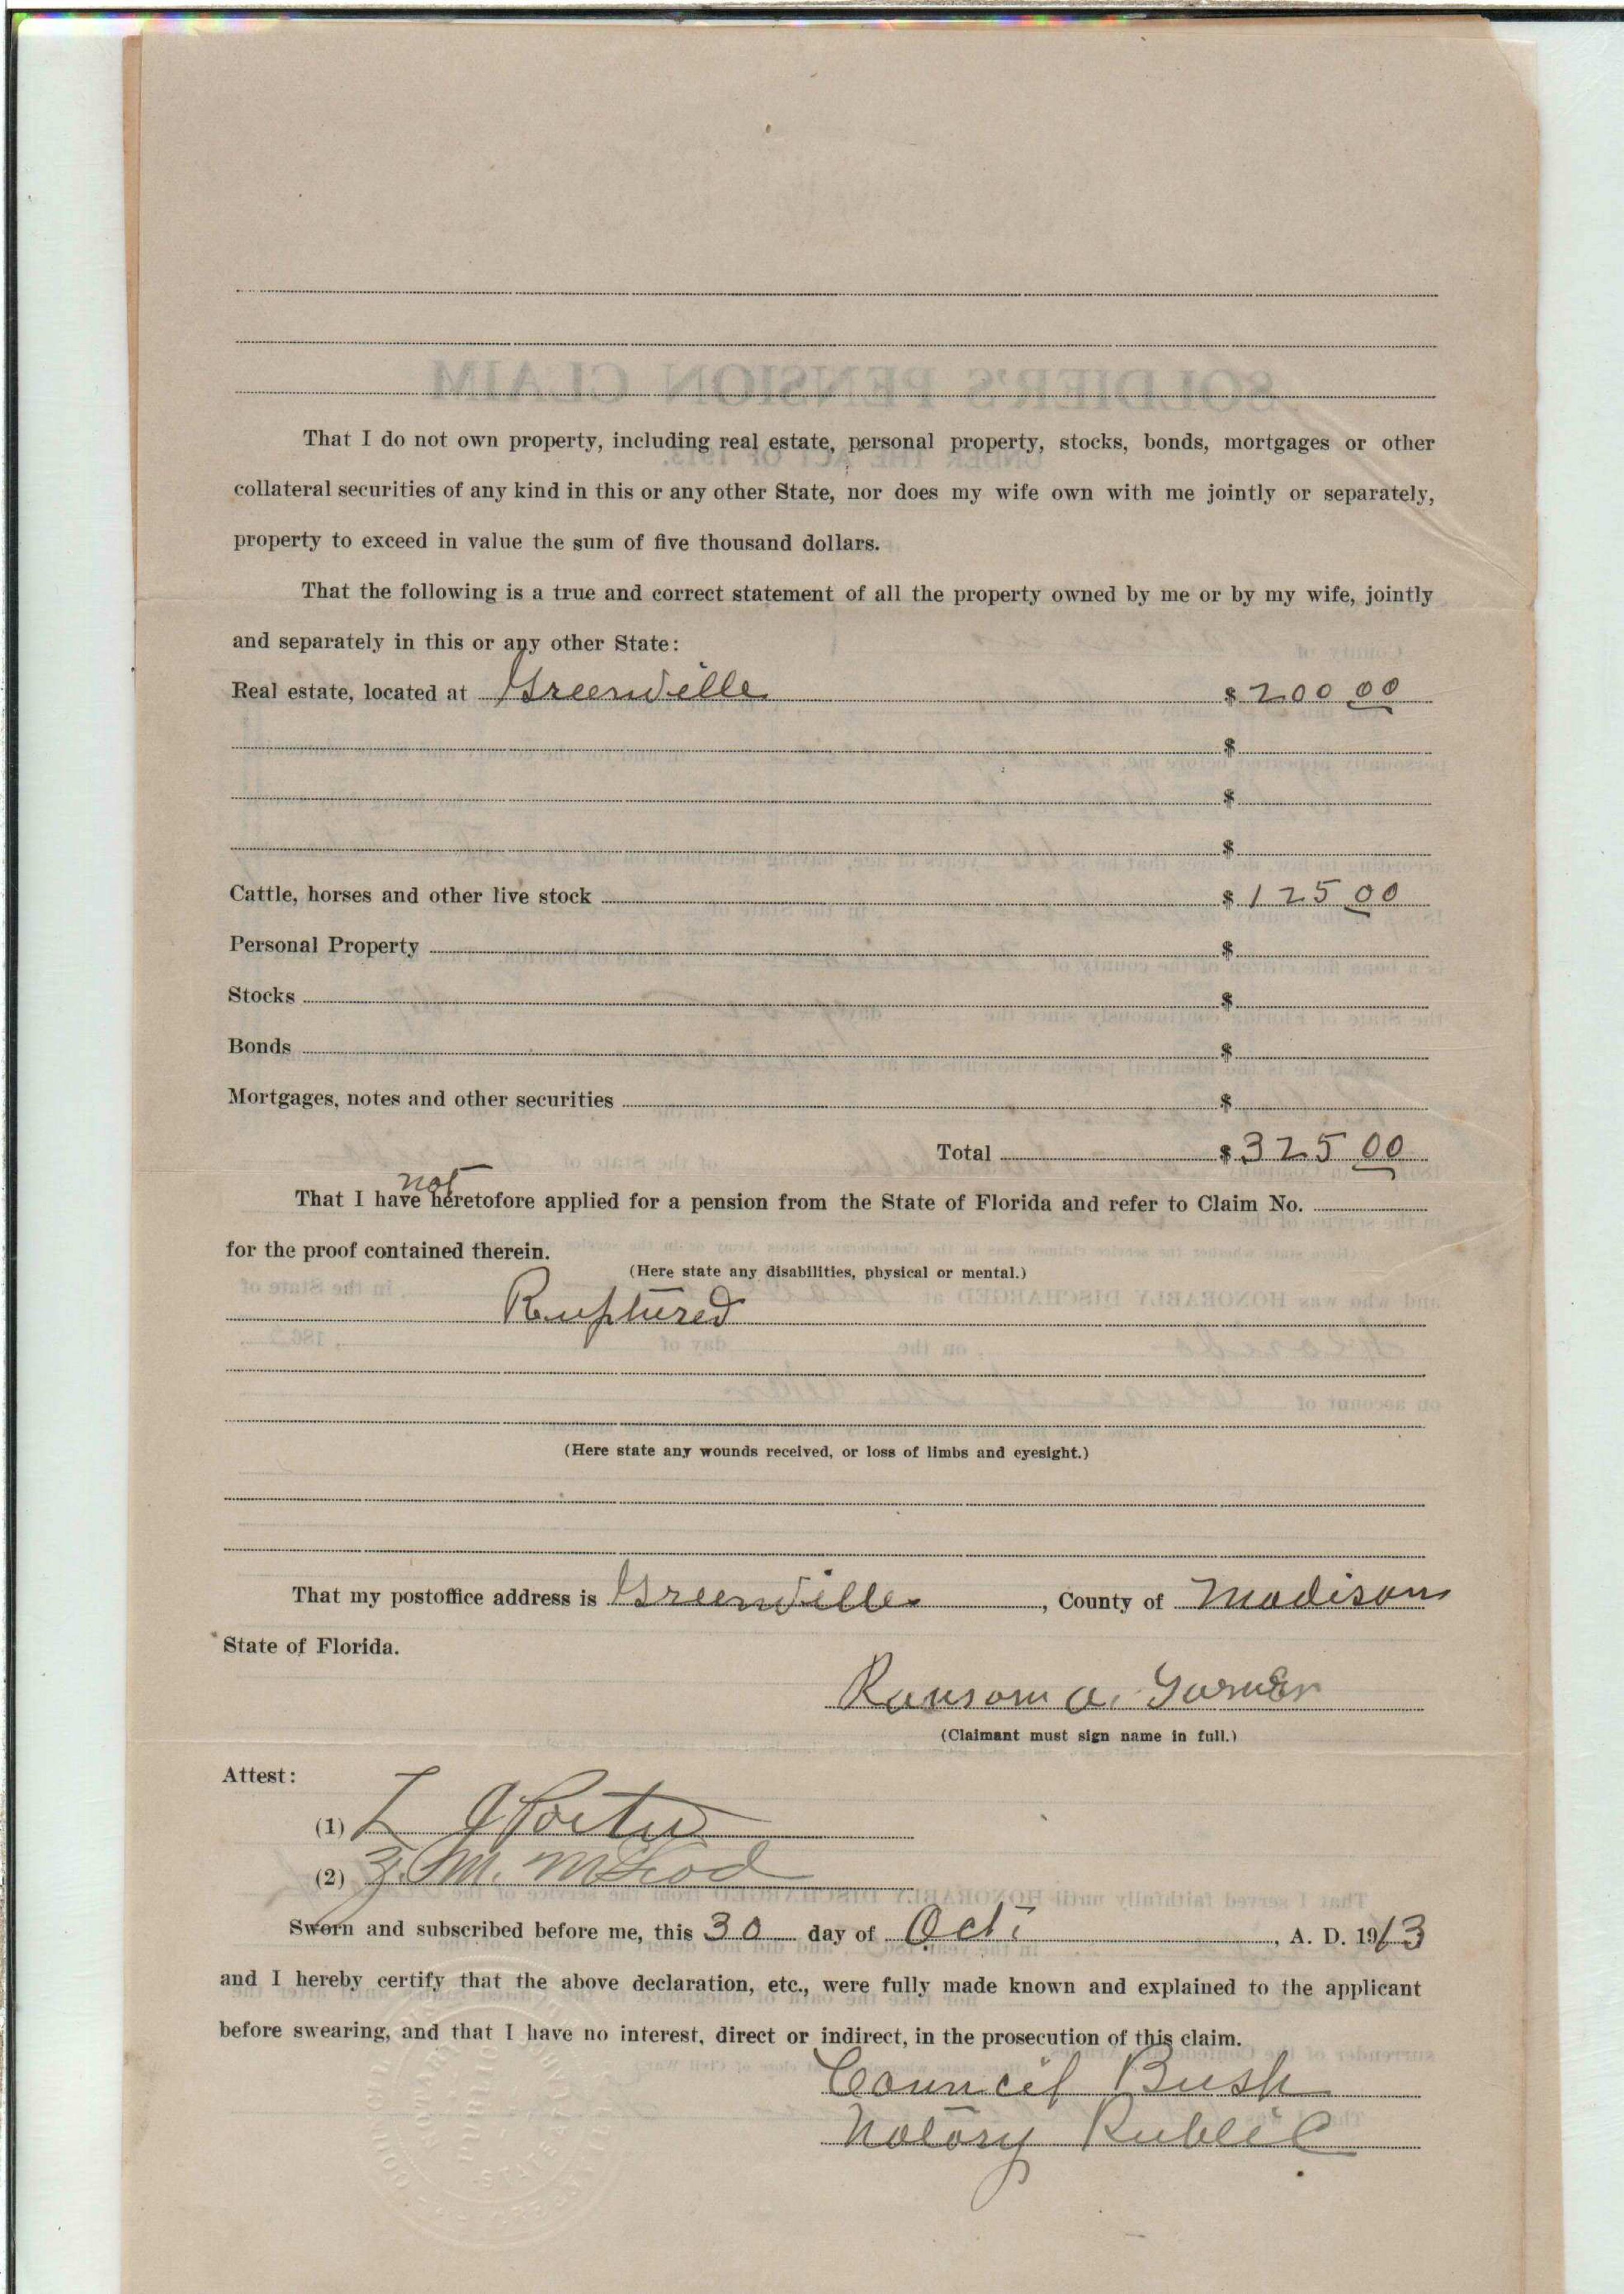 That I do not own property, including real estate, personal property, stocks, bonds, mortgages or other
collateral securities of any kind in this or any other State, nor does my wife own with me jointly or separately,
property to exceed in value the sum of five thousand dollars.
That the following is a true and correct statement of all the property owned by me or by my wife, jointly
and separately in this or any other State:
Real estate, located at Greenville $ 200 00
$
$
$
Cattle, horses and other live stock $ 125 00
Personal Property $
Stocks $
Bonds $
Mortgages, notes and other securities $
Total $ 325 00
not
That I have heretofore applied for a pension from the State of Florida and refer to Claim No.
for the proof contained therein.
(Here state any disabilities, physical or mental.)
Ruptured
(Here state any wounds received, or loss of limbs and eyesight.)
That my postoffice address is Greenville, County of Madison
State of Florida.
Ransom a.
(Claimant must sign name in full.)
Attest:
(1) L
(2) M. McLeod
Sworn and subscribed before me, this 30 day of Oct, A. D. 1913
and I hereby certify that the above declaration, etc., were fully made known and explained to the applicant
before swearing, and that I have no interest, direct or indirect, in the prosecution of this claim.
Council Bush
Notary Public